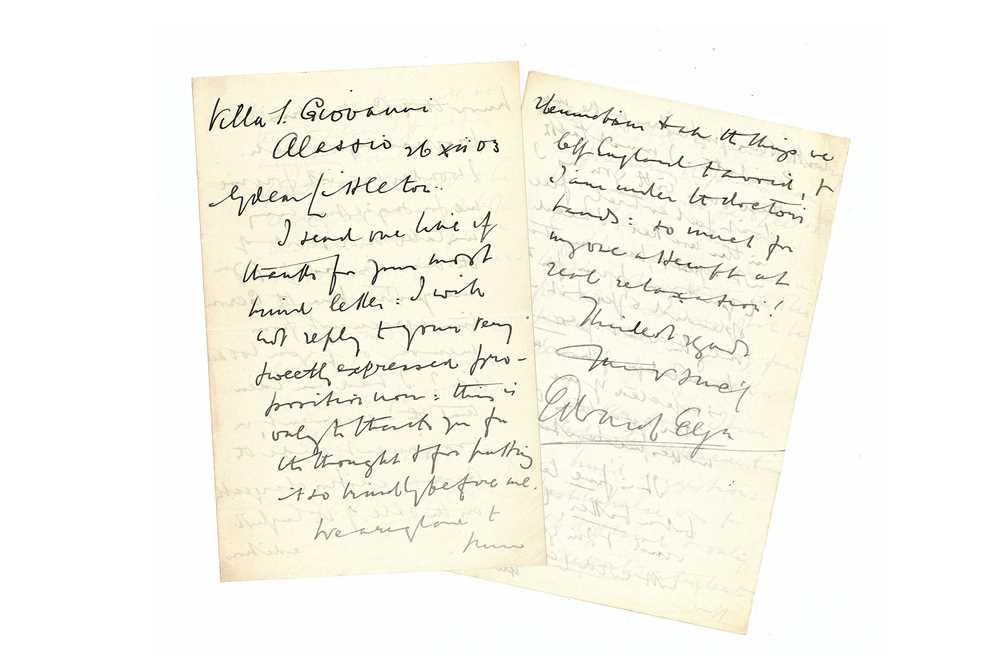 Villa S. Giovanni
Alassio 26 xii 03
My dear Littleton:
I send one line of
thanks for your most
kind letter: I will
not reply to your very
sweetly expressed pro-
position now: this is
only to thank you for
the thought & for putting
it so kindly before me.
We are
rheumatism & all the things we
left England to avoid, &
I am under the doctor's
hands: so much for
my one attempt at
real relaxation!
Kindest regards
Yours sincly
Edward Elgar